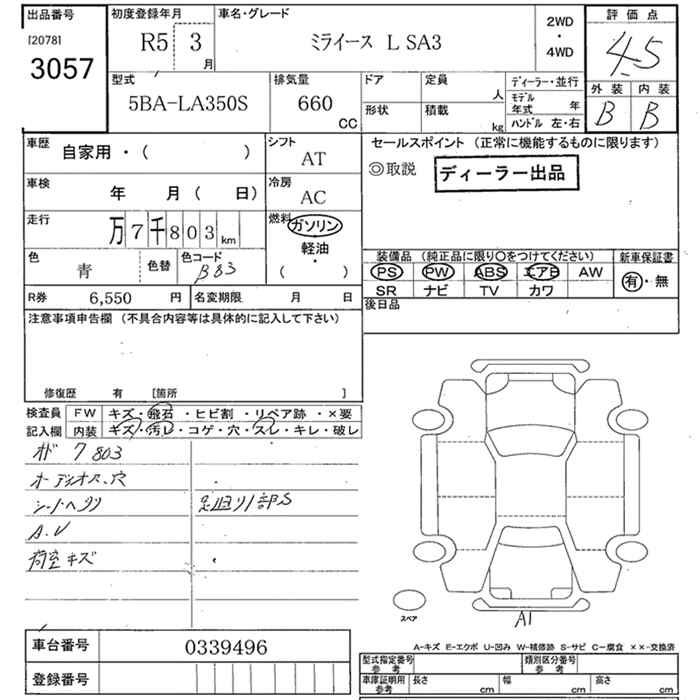 出品番号 初度登録年月 車名・グレード 2WD・4WD 評価点
[2078]
3057 R5 3月 ミライース L SA3 4.5
型式 排気量 ドア 定員 人 ディーラー・並行 外装 内装
5BA-LA350S 660 CC 形状 積載 kg モデル年式 年 B B
ハンドル 左・右
車歴 自家用・( ) シフト AT セールスポイント (正常に機能するものに限ります)
◎取説 ディーラー出品
車検 年 月( 日) 冷房 AC
走行 万7千803km 燃料 ガソリン・軽油・( )
色 青 色替 色コード B83
装備品 (純正品に限り○をつけてください) 新車保証書
PS PW ABS エアB AW 有・無
SR ナビ TV カワ
R券 6,550 円 名変期限 月 日 後日品
注意事項申告欄 (不具合内容等は具体的に記入して下さい)
修復歴 有 [箇所 ]
検査員 FW キズ・飛石・ヒビ割・リペア跡・×要
記入欄 内装 キズ・汚レ・コゲ・穴・スレ・キレ・破レ
オド 7803
オーディオス、穴
シートヘタリ 足廻り1部S
A.U
荷室キズ
スペア A1
車台番号 0339496
登録番号
A-キズ E-エクボ U-凹み W-補修跡 S-サビ C-腐食 ××-交換済
型式指定番号 参考 類別区分番号 参考
車庫証明用 参考 長さ cm 幅 cm 高さ cm